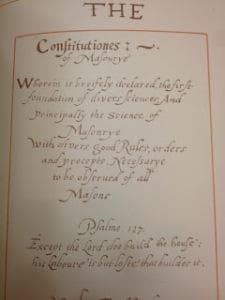 THE
Constitutiones :
of Masonrye
Wherein is briefely declared the first
foundation of divers sciences, And
Principally the Science of
Masonrye
With divers good Rules, orders
and precepts Necessarye
to be observed of all
Masons
Psalme 127.
Except the Lord doe build the house;
his Laboure is but losse that builder it.